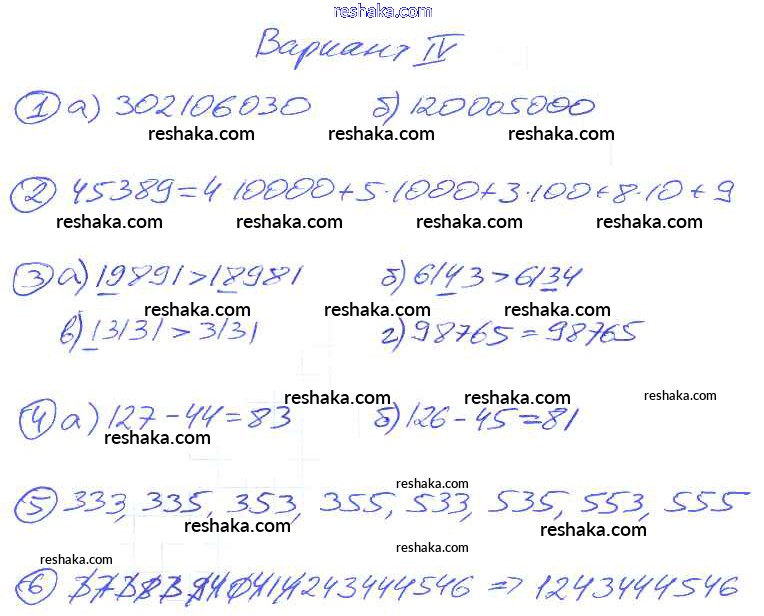 reshaka.com
Вариант IV
① а) 302106030 б) 120005000
reshaka.com reshaka.com reshaka.com
② 45389=4·10000+5·1000+3·100+8·10+9
reshaka.com reshaka.com reshaka.com reshaka.com
③ а) 19891>18981 б) 6143>6134
reshaka.com reshaka.com reshaka.com
в) 13131>3131 г) 98765=98765
reshaka.com reshaka.com reshaka.com
④ а) 127-44=83 б) 126-45=81
reshaka.com
reshaka.com
⑤ 333, 335, 353, 355, 533, 535, 553, 555
reshaka.com reshaka.com
reshaka.com reshaka.com
⑥ 37383940414243444546 => 1243444546